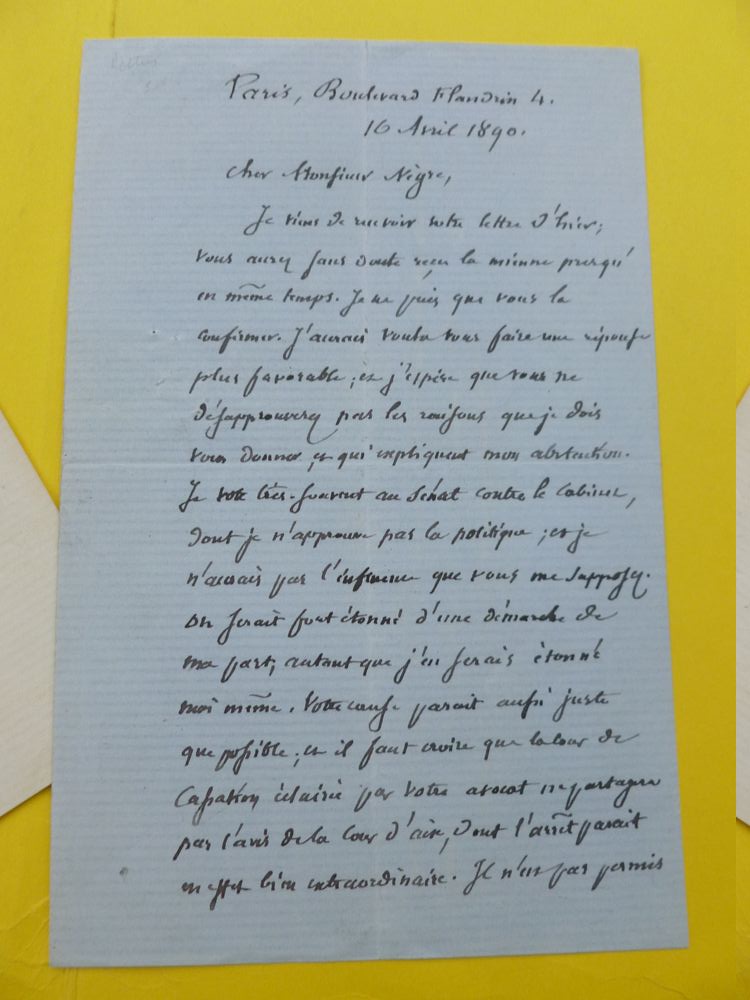 Paris, Boulevard Flandrin 4.
16 Avril 1890.
Cher Monsieur Nègre,
Je viens de recevoir votre lettre d'hier;
vous aurez sans doute reçu la mienne presqu'
en même temps. Je ne puis que vous la
confirmer. J'aurais voulu vous faire une réponse
plus favorable; et j'espère que vous ne
désapprouverez pas les raisons que je dois
vous donner, et qui expliquent mon abstention.
Je vote très-souvent au Sénat contre le Cabinet,
dont je n'approuve pas la politique; et je
n'aurais pas l'influence que vous me supposez.
On serait fort étonné d'une démarche de
ma part; autant que j'en serais étonné
moi même. Votre cause parait aussi juste
que possible; et il faut croire que la Cour de
Cassation éclairée par votre avocat ne partagera
pas l'avis de la Cour d'aix, dont l'arrêt parait
en effet bien extraordinaire. Il n'est pas permis